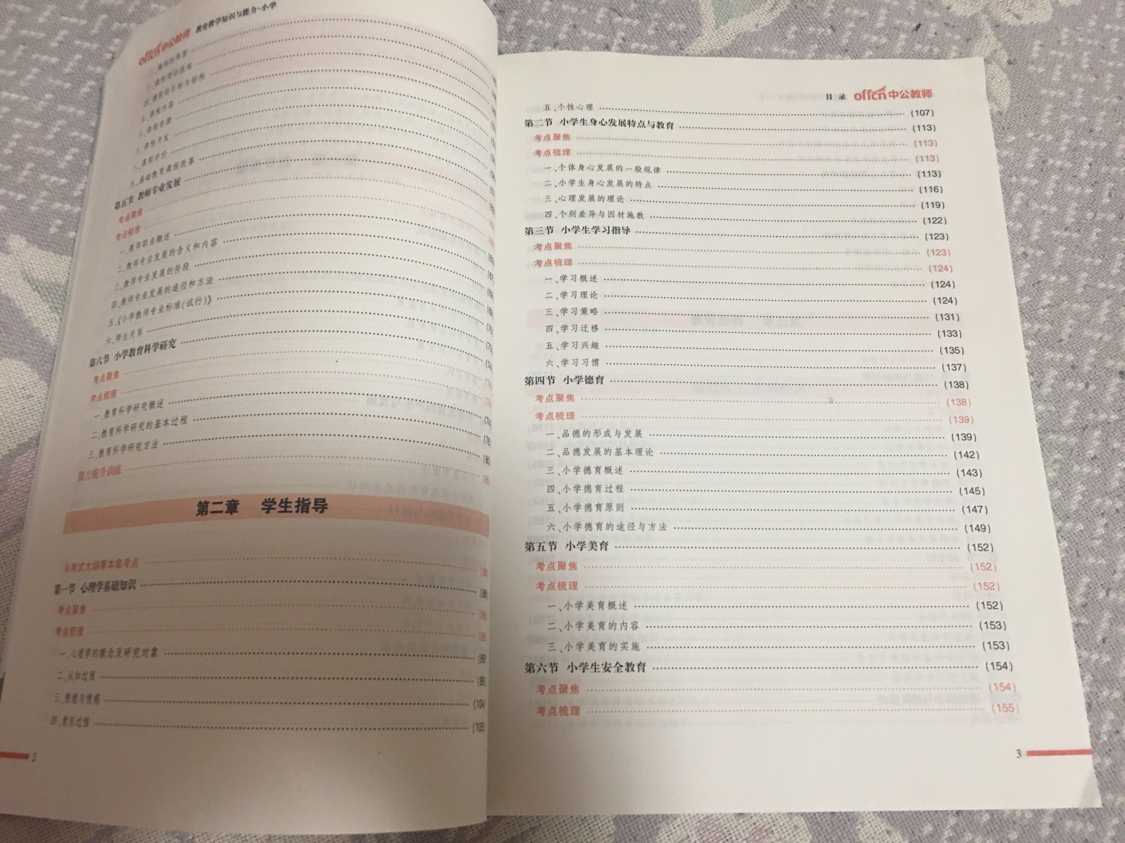 offcn中公教师 教育教学知识与能力·小学
第五节 教师专业发展
考点聚焦
考点梳理
一、教师职业概述
二、教师专业发展的含义和内容
三、教师专业发展的阶段
四、教师专业发展的途径和方法
五、《小学教师专业标准(试行)》
六、师生关系
第六节 小学教育科学研究
考点聚焦
考点梳理
一、教育科学研究概述
二、教育科学研究的基本过程
三、教育科学研究方法
能力提升训练
第二章 学生指导
从考试大纲看本章考点
第一节 心理学基础知识
考点聚焦
考点梳理
一、心理学的概念及研究对象
二、认知过程
三、情绪与情感 (104)
四、意志过程 (105)
2
目 录 offcn中公教师
五、个性心理 (107)
第二节 小学生身心发展特点与教育 (113)
考点聚焦 (113)
考点梳理 (113)
一、个体身心发展的一般规律 (113)
二、小学生身心发展的特点 (116)
三、心理发展的理论 (119)
四、个别差异与因材施教 (122)
第三节 小学生学习指导 (123)
考点聚焦 (123)
考点梳理 (124)
一、学习概述 (124)
二、学习理论 (124)
三、学习策略 (131)
四、学习迁移 (133)
五、学习兴趣 (135)
六、学习习惯 (137)
第四节 小学德育 (138)
考点聚焦 (138)
考点梳理 (139)
一、品德的形成与发展 (139)
二、品德发展的基本理论 (142)
三、小学德育概述 (143)
四、小学德育过程 (145)
五、小学德育原则 (147)
六、小学德育的途径与方法 (149)
第五节 小学美育 (152)
考点聚焦 (152)
考点梳理 (152)
一、小学美育概述 (152)
二、小学美育的内容 (153)
三、小学美育的实施 (153)
第六节 小学生安全教育 (154)
考点聚焦 (154)
考点梳理 (155)
3